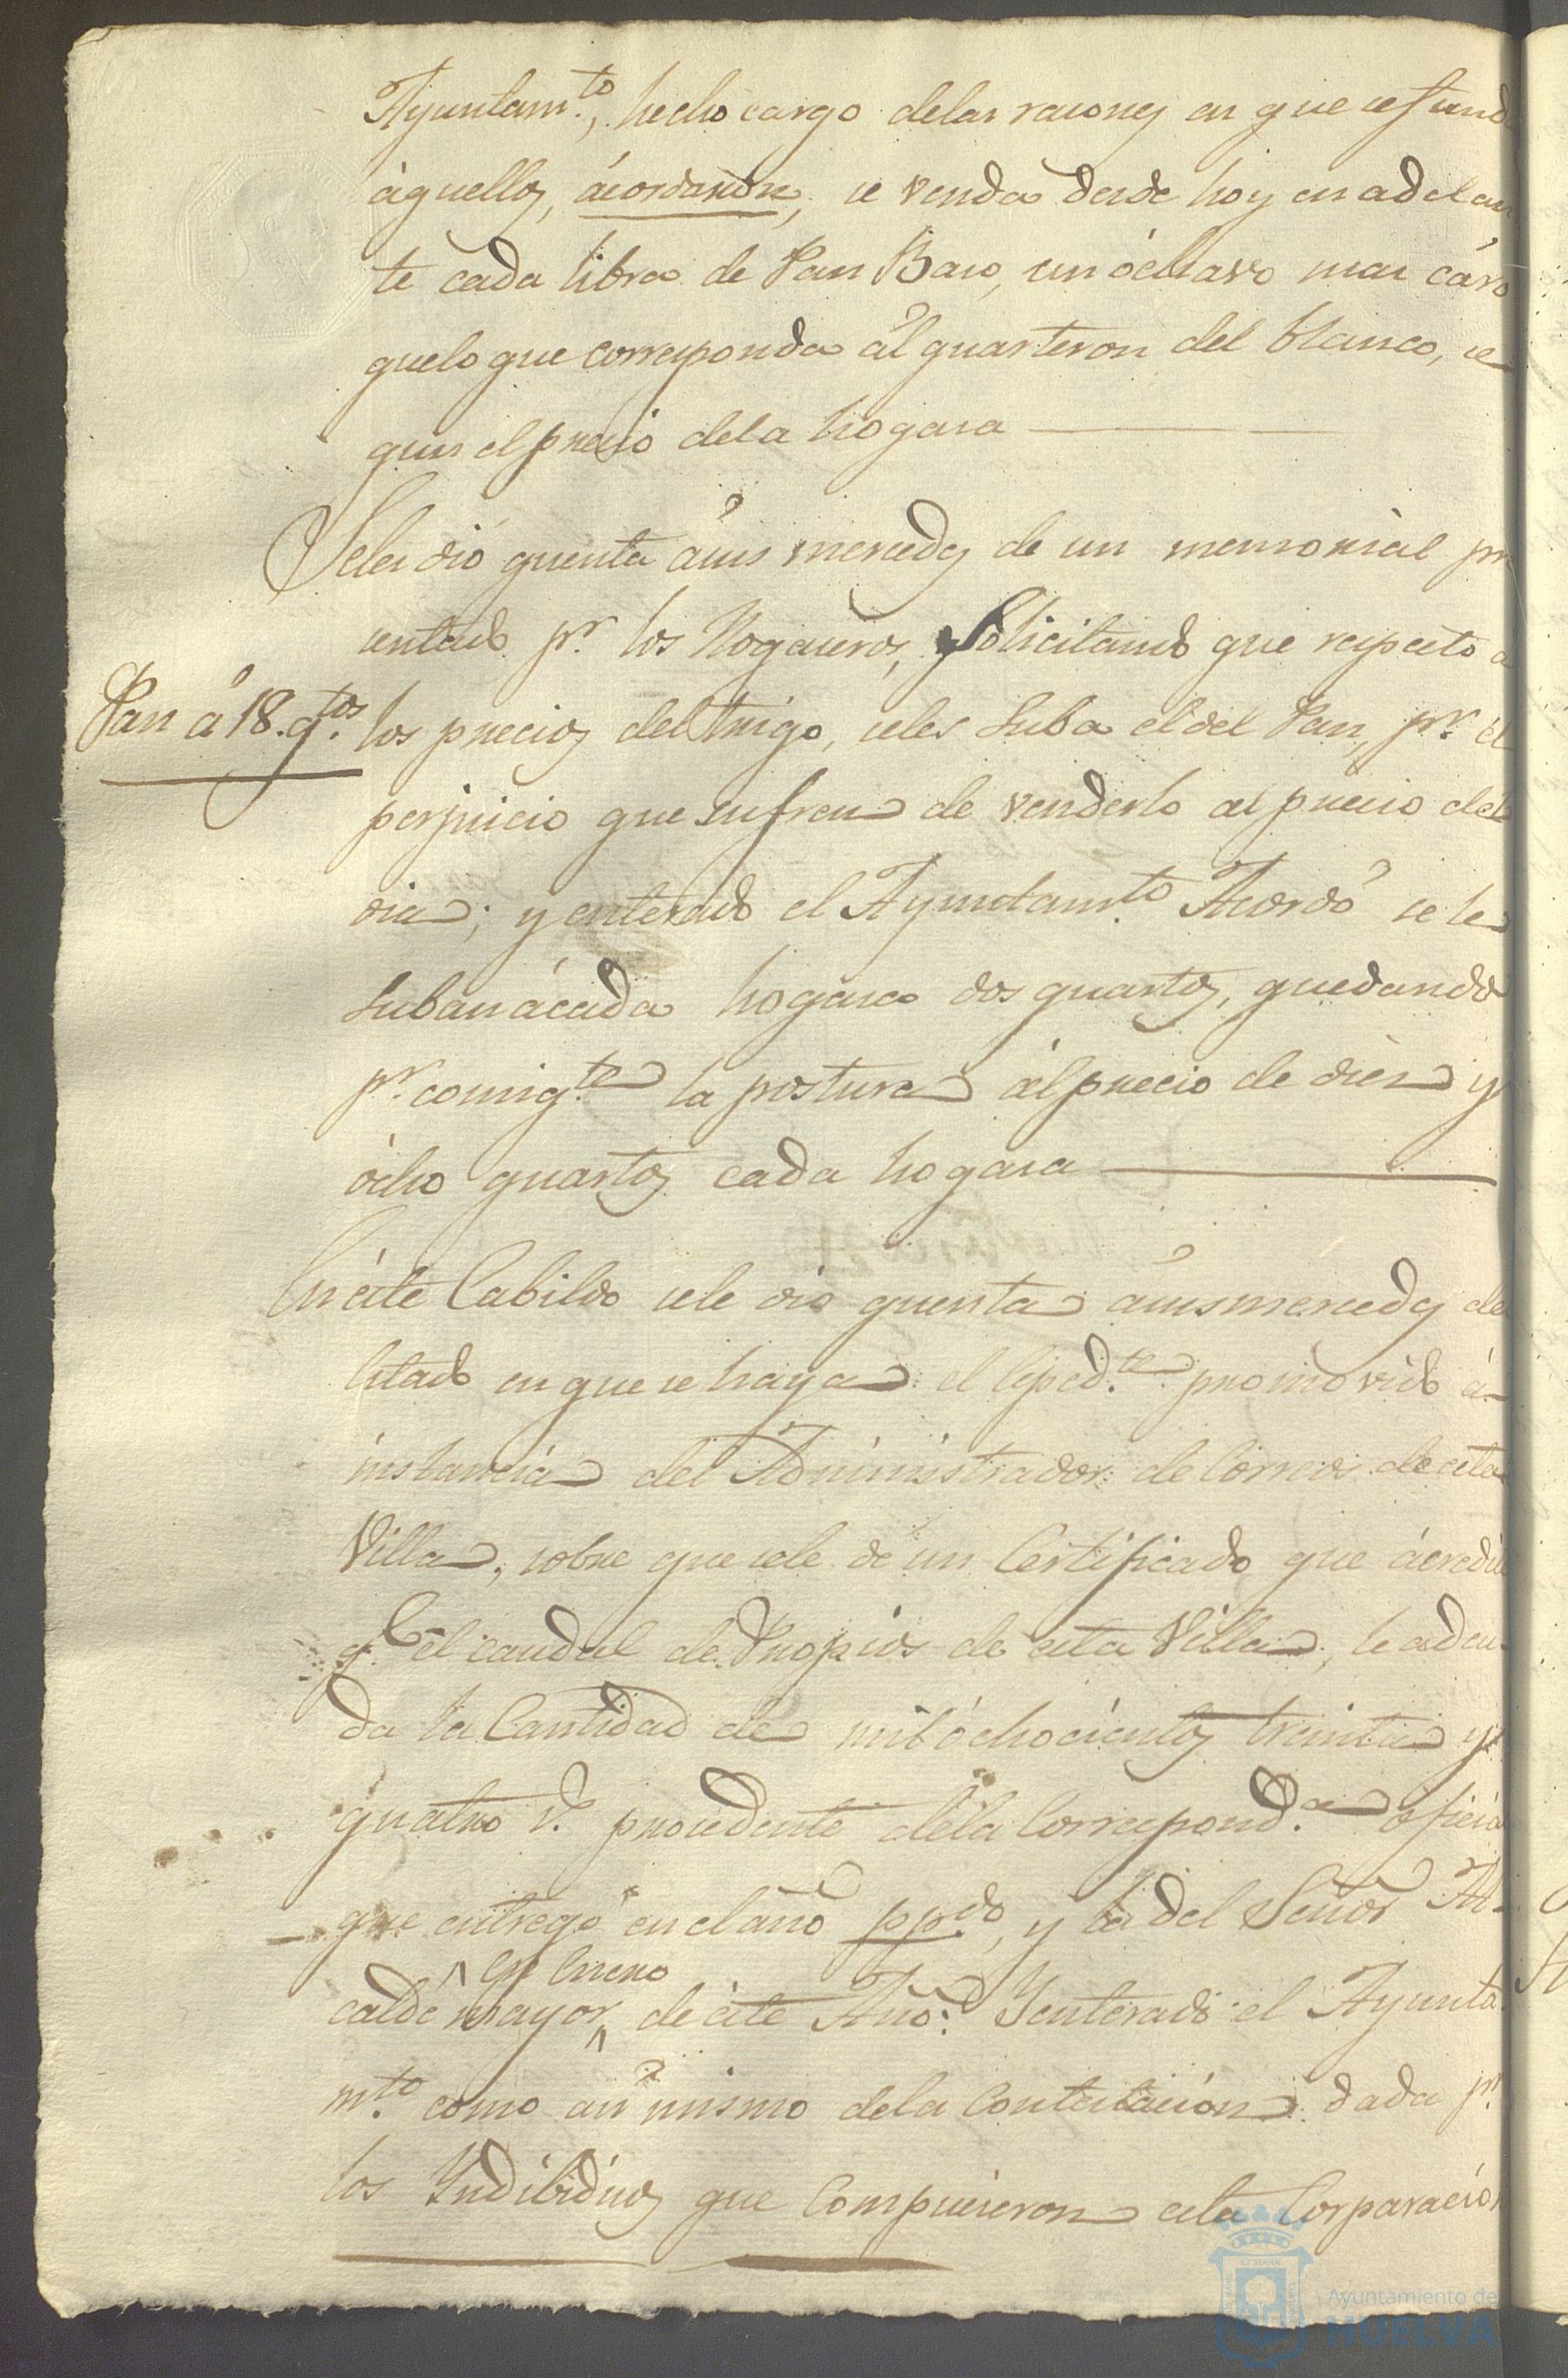 Ayuntam.to, hecho cargo delas rasones en que se fund
áquellos, ácordaron, se venda desde hoy en adelan
te cada libra de Pan Baso, un óchavo mas cáro
quelo que corresponda ál quarteron del blanco, se
gun el precio dela hogasa
Seles dió quenta ásus mercedes de un memorial pre
sentado p.r los Hogaseros, Solicitando que respecto a
Pan á 18. q.tos
los precios del trigo, seles suba el del Pan, p.r el
perjuicio que sufren de venderlo al precio del
dia; y enterado el Ayuntam.to Acordó se le
suban ácada hogasa dos quartos, quedando
p.r consig.te la postura ál precio de dies y
ócho quartos cada hogasa
En éste Cabildo sele dio quenta ásus mercedes del
estado en que se haya el Exped.te promovido á
instancia del Administrador de Correos de esta
Villa, sobre que sele dé un Certificado que ácredite
q.e el caudal de Propios de esta Villa, le adeu
da la Cantidad de mil óchocientos treinta y
quatro r.s procedente dela Correspond.a oficial
que entregó en el año pp.do, y la del Señor Al
en Enero
calde mayor de éste Año: Yenterado el Ayunta
m.to como así mismo dela Contestacion dada p.r
los Yndibiduos que Compusieron esta Corporacion
Ayuntamiento de
HUELVA